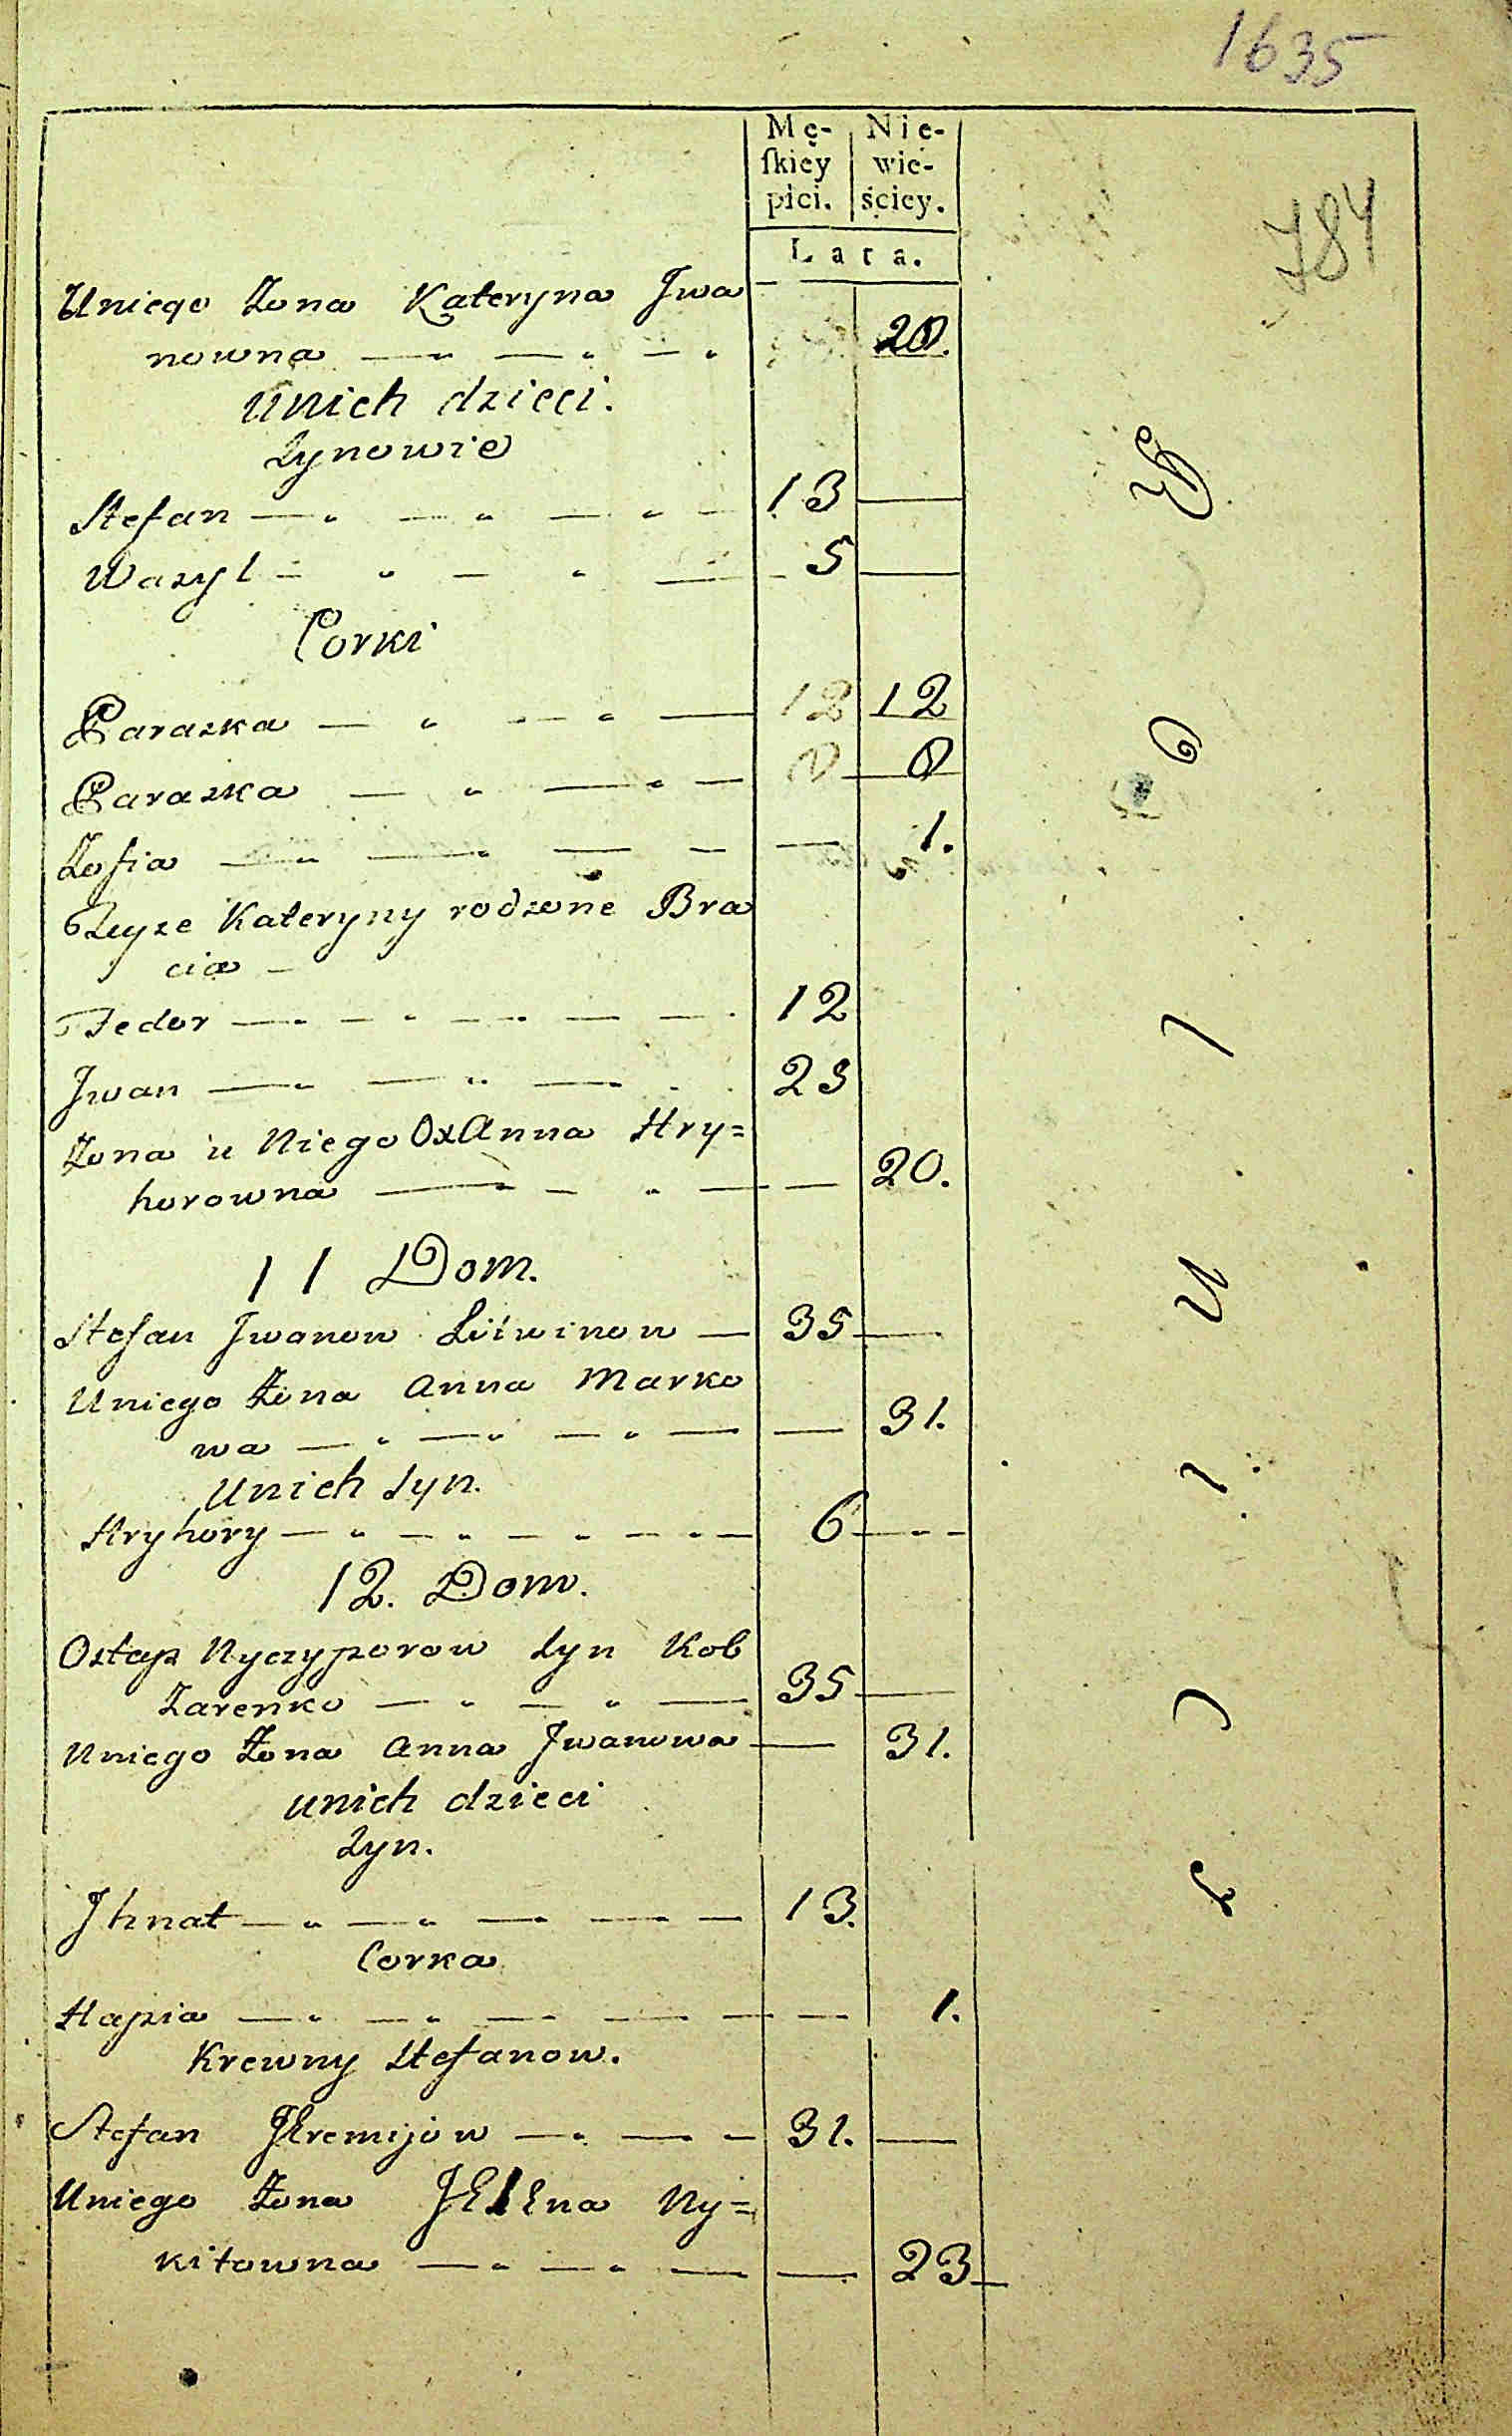 1635
784
Mę-
ſkiey
płci.
Nie-
wie-
ściey.
Lata.
Uniego Żona Kateryna Jwa
nowna 28.
Unich dzieci.
Synowie
Stefan 13
Wasyl 5
Corki
Paraska 12 12
Paraska 8 8
Zofia 1.
Teyże Kateryny rodzone Bra
cia
Fedor 12
Jwan 23
Żona u Niego Oxanna Hry=
horowna 20.
11 Dom.
Stefan Jwanow Litwinow 35
Uniego Żona Anna Marko
wa 31.
Unich Syn.
Hryhory 6
12. Dom.
Ostap Nyczyporow Syn Kob
zarenko 35
Uniego Żona Anna Jwanowa 31.
unich dzieci
Syn.
Jhnat 13.
Corka
Hapia 1.
Krewny Stefanow.
Stefan JEremijow 31.
Uniego Żona JElEna Ny=
kitowna 23